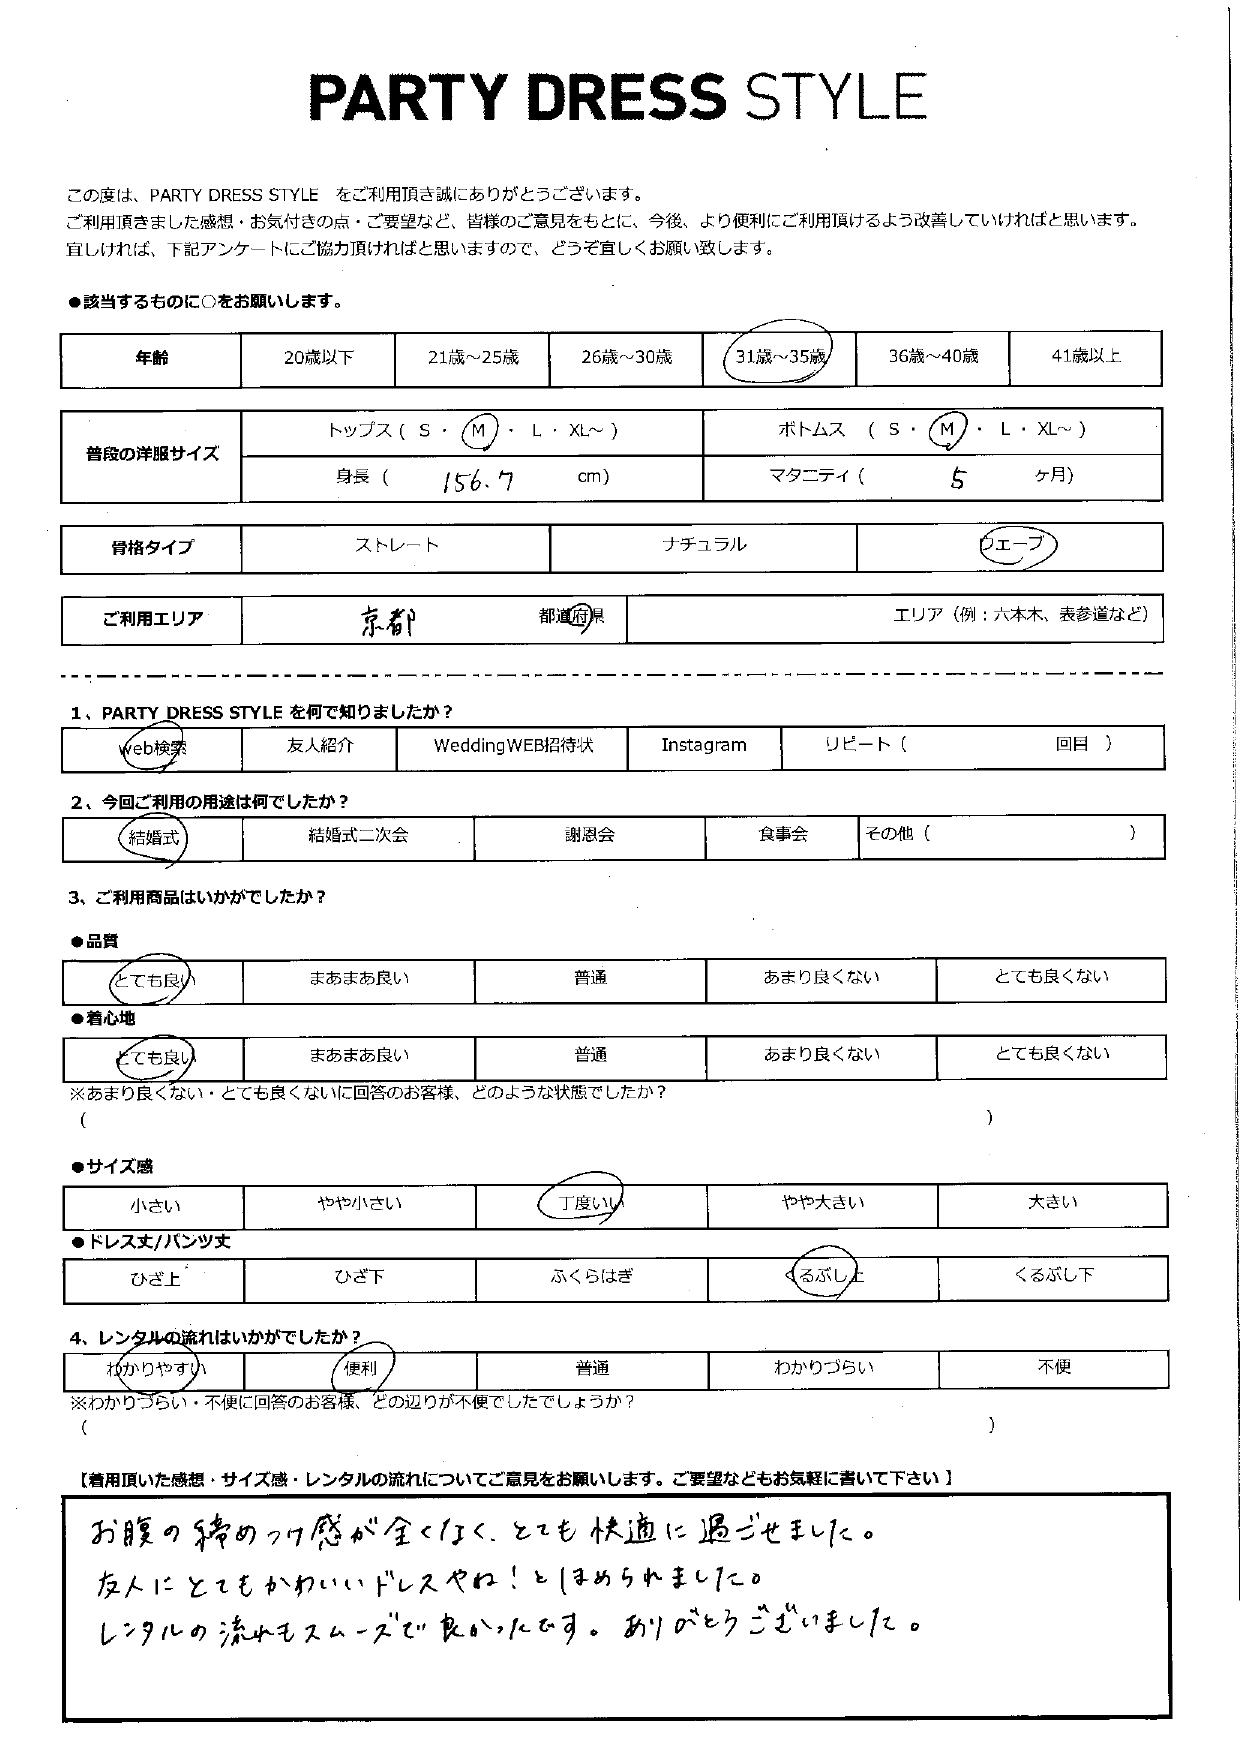 PARTY DRESS STYLE
この度は、PARTY DRESS STYLE をご利用頂き誠にありがとうございます。
ご利用頂きました感想・お気付きの点・ご要望など、皆様のご意見をもとに、今後、より便利にご利用頂けるよう改善していければと思います。
宜しければ、下記アンケートにご協力頂ければと思いますので、どうぞ宜しくお願い致します。
●該当するものに○をお願いします。
年齢 20歳以下 21歳～25歳 26歳～30歳 31歳～35歳 36歳～40歳 41歳以上
普段の洋服サイズ トップス ( S ・ M ・ L ・ XL～ ) ボトムス ( S ・ M ・ L ・ XL～ )
身長 ( 156.7 cm) マタニティ ( 5 ヶ月)
骨格タイプ ストレート ナチュラル ウェーブ
ご利用エリア 京都 都道府県 エリア（例：六本木、表参道など）
1、PARTY DRESS STYLE を何で知りましたか？
web検索 友人紹介 WeddingWEB招待状 Instagram リピート ( 回目 )
2、今回ご利用の用途は何でしたか？
結婚式 結婚式二次会 謝恩会 食事会 その他 ( )
3、ご利用商品はいかがでしたか？
●品質
とても良い まあまあ良い 普通 あまり良くない とても良くない
●着心地
とても良い まあまあ良い 普通 あまり良くない とても良くない
※あまり良くない・とても良くないに回答のお客様、どのような状態でしたか？
( )
●サイズ感
小さい やや小さい 丁度いい やや大きい 大きい
●ドレス丈/パンツ丈
ひざ上 ひざ下 ふくらはぎ くるぶし上 くるぶし下
4、レンタルの流れはいかがでしたか？
わかりやすい 便利 普通 わかりづらい 不便
※わかりづらい・不便に回答のお客様、どの辺りが不便でしたでしょうか？
( )
【着用頂いた感想・サイズ感・レンタルの流れについてご意見をお願いします。ご要望などもお気軽に書いて下さい】
お腹の締めつけ感が全くなく、とても快適に過ごせました。
友人にとてもかわいいドレスやね！とほめられました。
レンタルの流れもスムーズで良かったです。ありがとうございました。